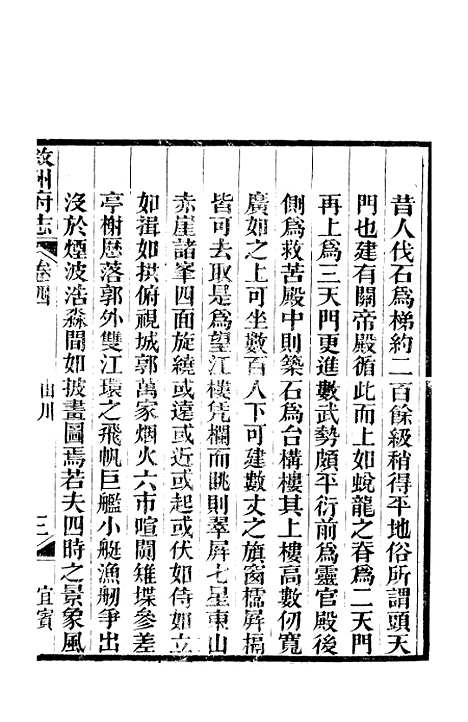 昔人伐石爲梯約二百餘級稍得平地俗所謂頭天
門也建有關帝殿循此而上如蛻龍之脊爲二天門
再上爲三天門更進數武勢頗平衍前爲靈官殿後
側爲救苦殿中則築石爲台構樓其上樓高數仞寬
廣如之上可坐數百人下可建數丈之旗窗櫺屏槅
皆可去取是爲望江樓凭欄而眺則翠屏七星東山
赤崖諸峯四面旋繞或遠或近或起或伏如侍如立
如揖如拱俯視城郭萬家烟火六市喧闐雉堞參差
亭榭歷落郭外雙江環之飛帆巨艦小艇漁舠爭出
沒於煙波浩淼間如披畫圖焉若夫四時之景象風
敘州府志 卷四 山川 三 宜賓